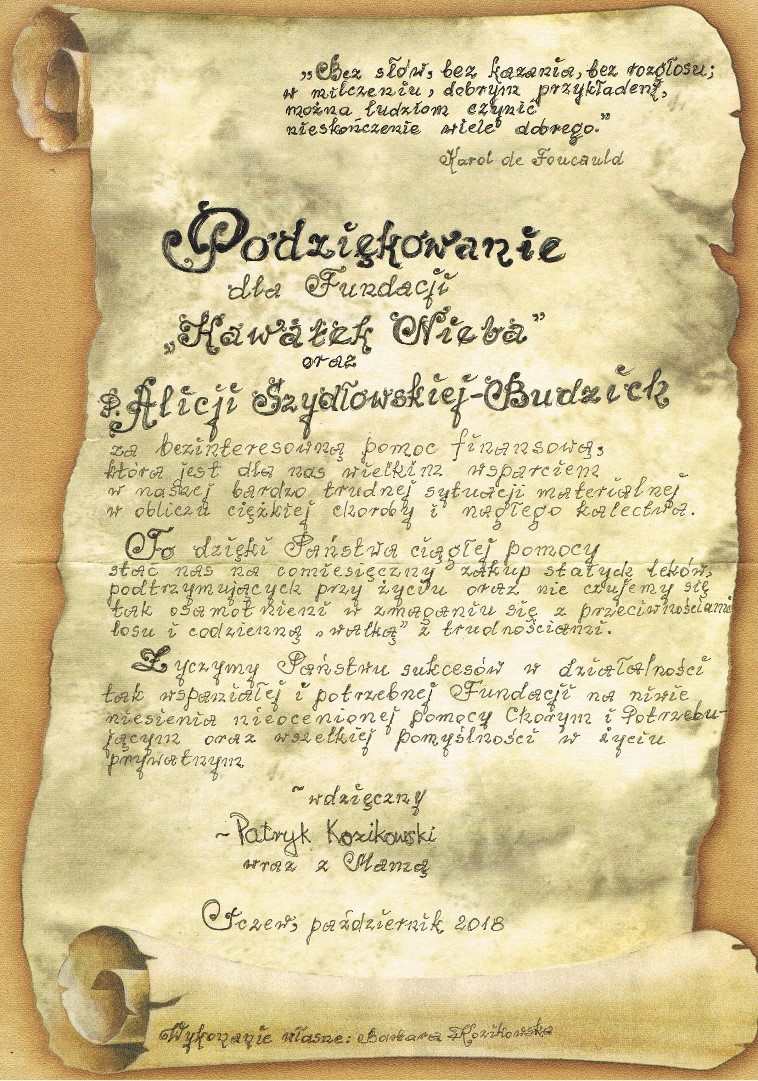 „Bez słów, bez kazania, bez rozgłosu;
w milczeniu, dobrym przykładem,
można ludziom czynić
nieskończenie wiele dobrego."
Karol de Foucauld
Podziękowanie
dla Fundacji
„Kawałek Nieba"
oraz
P. Alicji Szydłowskiej-Budzich
za bezinteresowną pomoc finansową,
która jest dla nas wielkim wsparciem
w naszej bardzo trudnej sytuacji materialnej
w obliczu ciężkiej choroby i nagłego kalectwa.
To dzięki Państwa ciągłej pomocy
stać nas na comiesięczny zakup stałych leków,
podtrzymujących przy życiu oraz nie czujemy się
tak osamotnieni w zmaganiu się z przeciwnościami
losu i codzienną „walką" z trudnościami.
Życzymy Państwu sukcesów w działalności
tak wspaniałej i potrzebnej Fundacji na niwie
niesienia nieocenionej pomocy Chorym i Potrzebu-
jącym oraz wszelkiej pomyślności w życiu
prywatnym
~ wdzięczny
~ Patryk Kozikowski
wraz z Mamą
Tczew, październik 2018
Wykonanie własne: Barbara Kozikowska